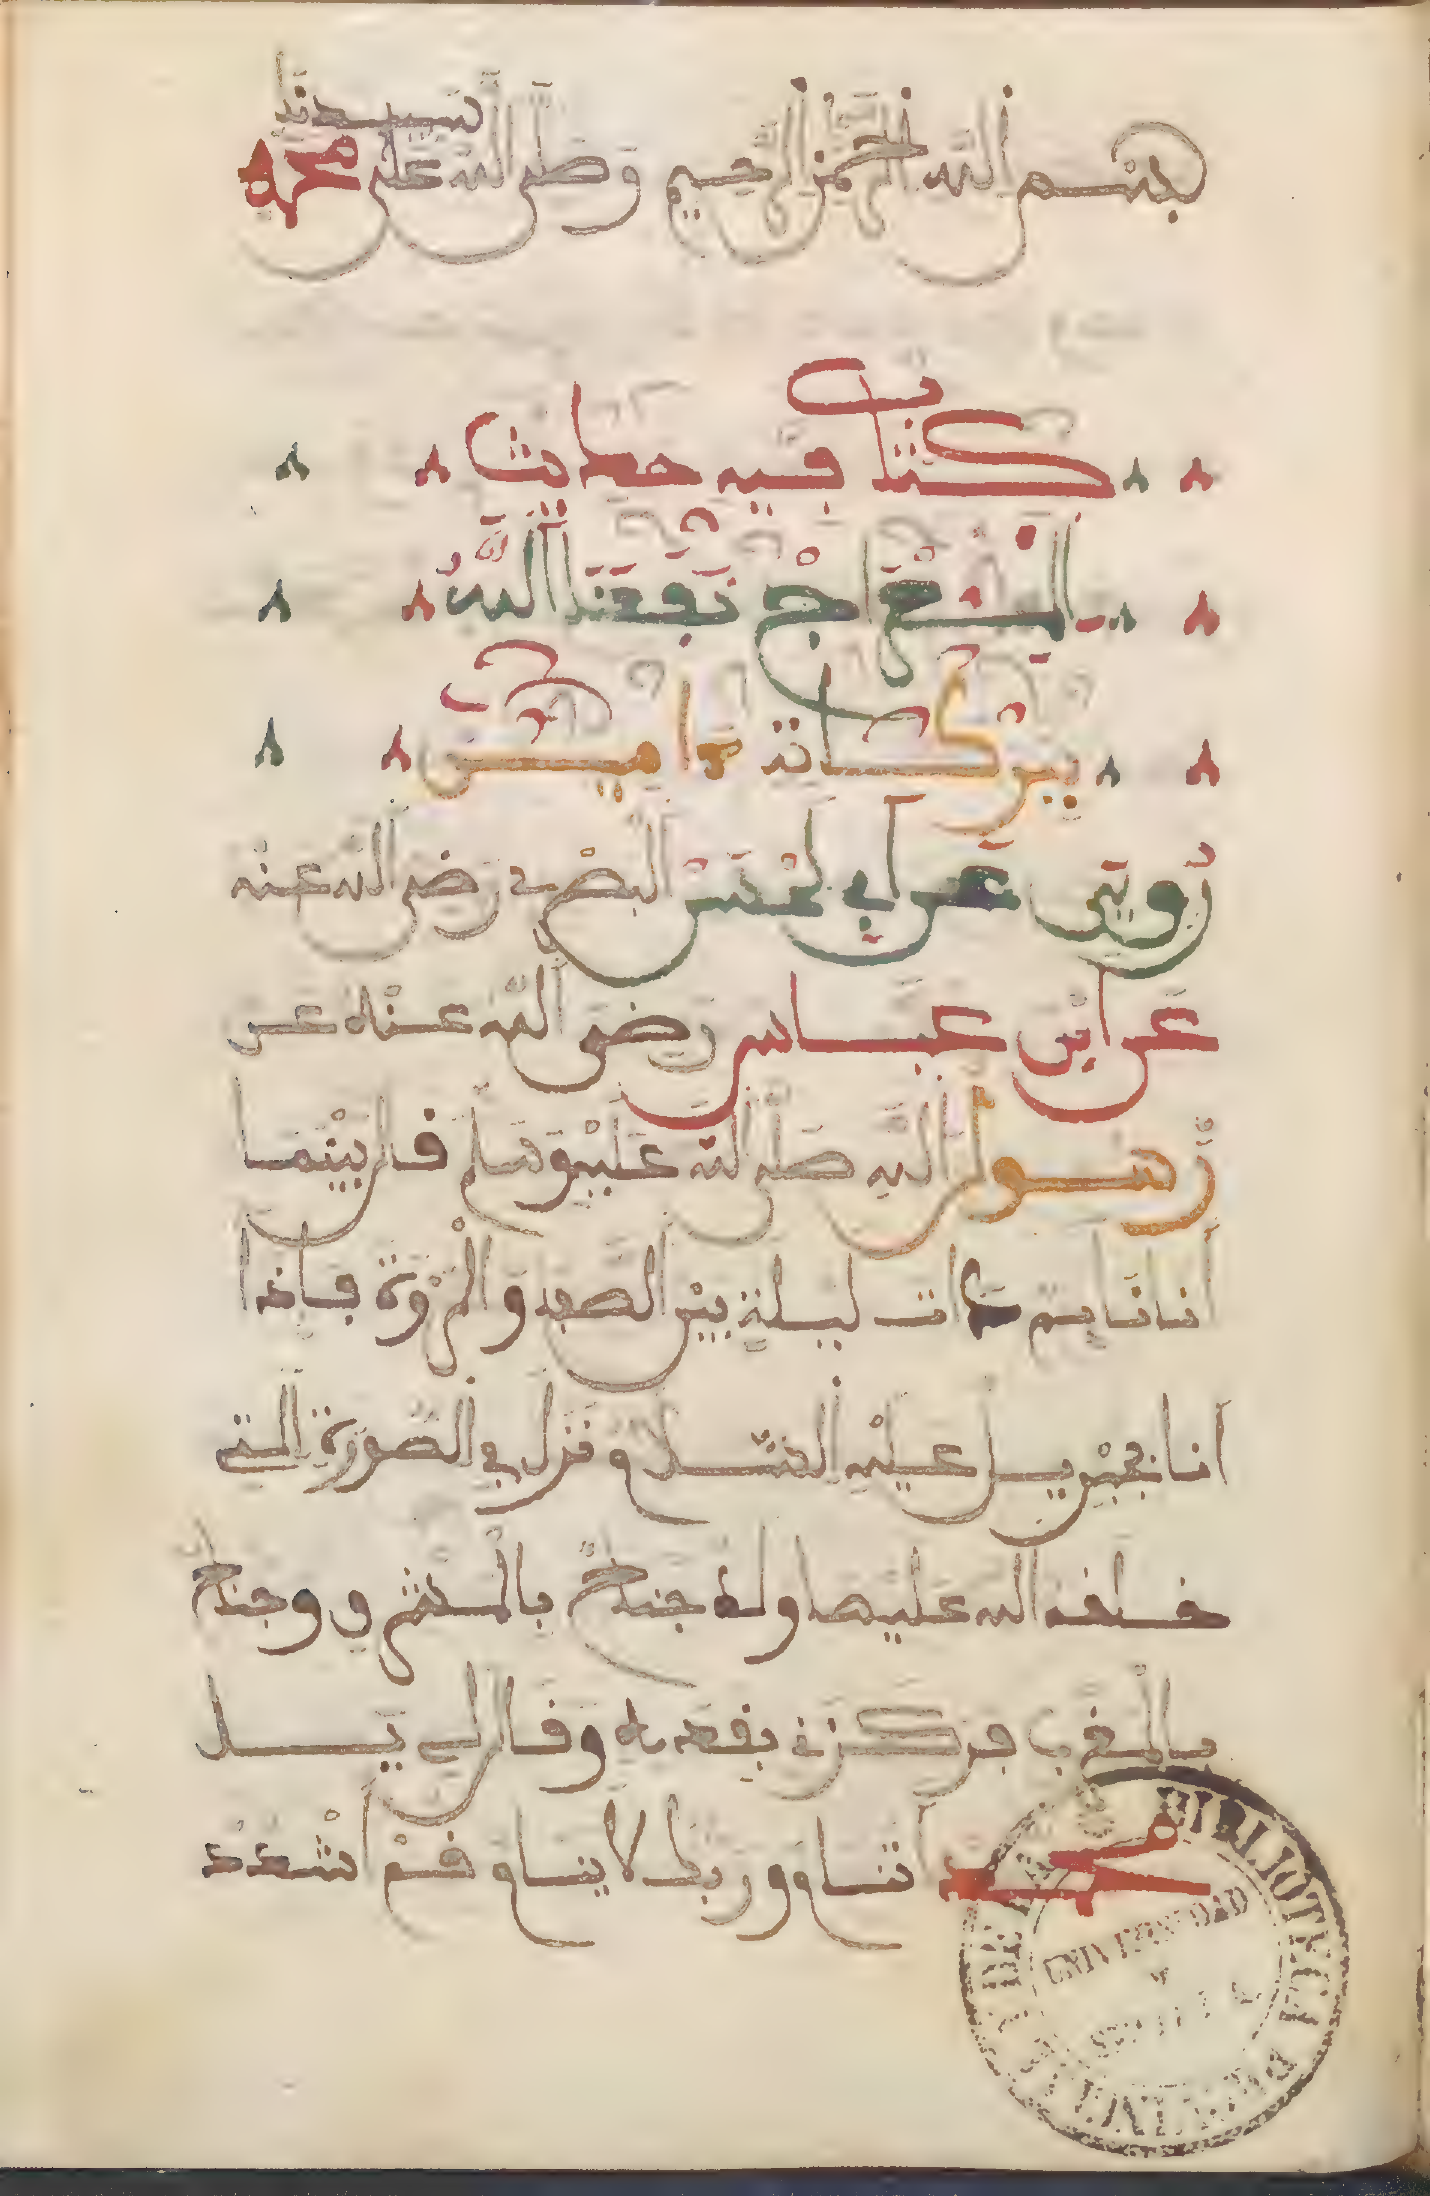 بسم الله الرحمن الرحيم وصلى الله على سيدنا محمد
كتاب فيه حداث
المعراج نفعنا الله
ببركاته ءامين
روي عن أبي لحسن البصري رضي الله عنه
عن ابن عباس رضي الله عنه عن
رسول الله صلى الله عليه وسلم قال بينما
أنا نايم ذات ليلة بين الصفا والمروة فإذا
أنا بجبريل عليه السلام نزل في الصورة التي
خلقه الله عليها وله جناح بالمشرق وجناح
بالمغرب فركزني بقدمه وقال لي يا
محمد أتنام وربك لا ينام قم أشدد
BIBLIOTECA PROVINCIAL DE LA
UNIVERSIDAD